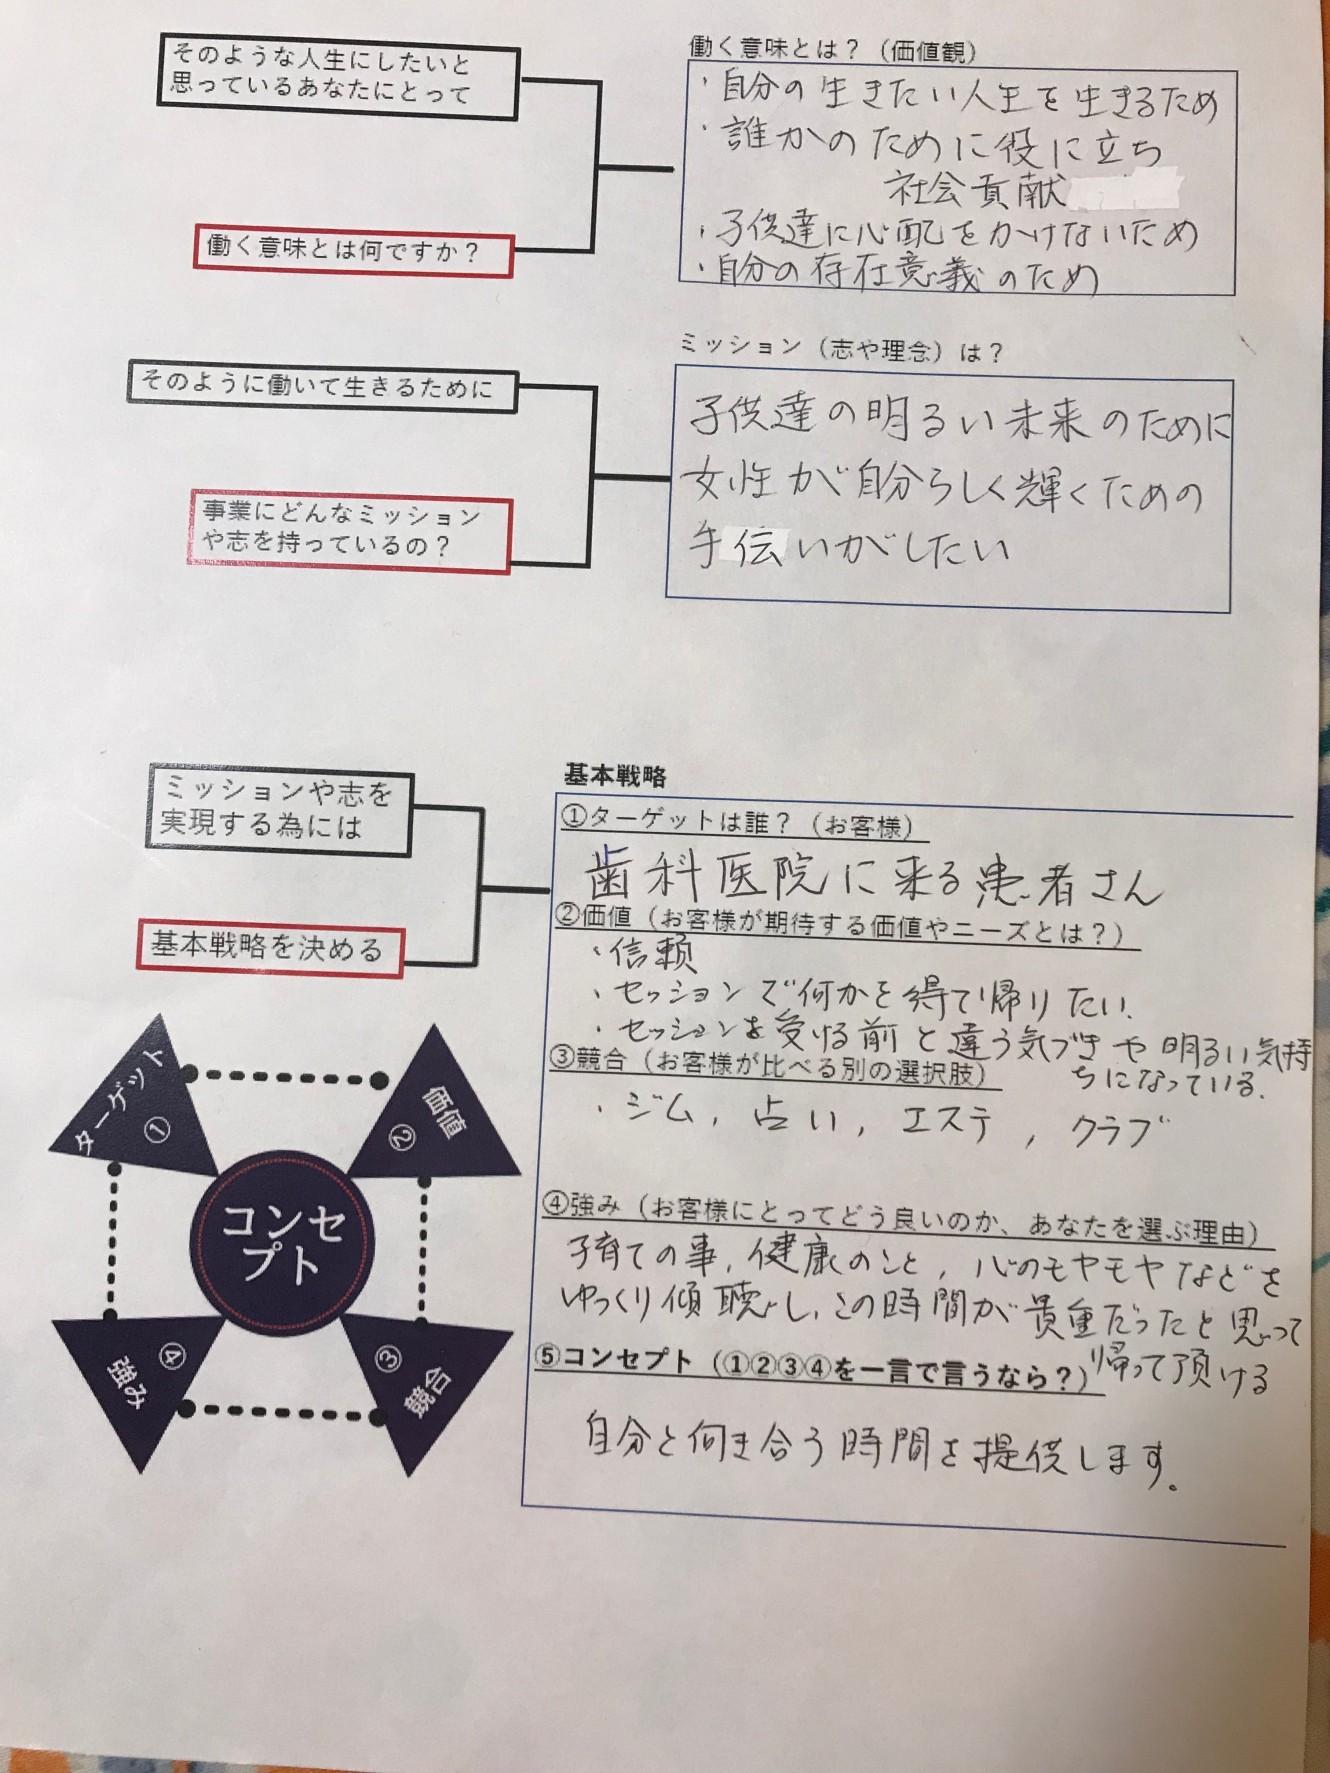 そのような人生にしたいと
思っているあなたにとって
働く意味とは何ですか？
働く意味とは？（価値観）
・自分の生きたい人生を生きるため
・誰かのために役に立ち
社会貢献
・子供達に心配をかけないため
・自分の存在意義のため
そのように働いて生きるために
事業にどんなミッション
や志を持っているの？
ミッション（志や理念）は？
子供達の明るい未来のために
女性が自分らしく輝くための
手伝いがしたい
ミッションや志を
実現する為には
基本戦略を決める
基本戦略
①ターゲットは誰？（お客様）
歯科医院に来る患者さん
②価値（お客様が期待する価値やニーズとは？）
・信頼
・セッションで何かを得て帰りたい.
・セッションを受ける前と違う気づきや明るい気持
ちになっている.
③競合（お客様が比べる別の選択肢）
・ジム, 占い, エステ, クラブ
④強み（お客様にとってどう良いのか、あなたを選ぶ理由）
子育ての事, 健康のこと, 心のモヤモヤなどを
ゆっくり傾聴し, この時間が貴重だったと思って
帰って頂ける
⑤コンセプト（①②③④を一言で言うなら？）
自分と向き合う時間を提供します。
ターゲット
①
価値
②
コンセ
プト
強み
④
③
競合